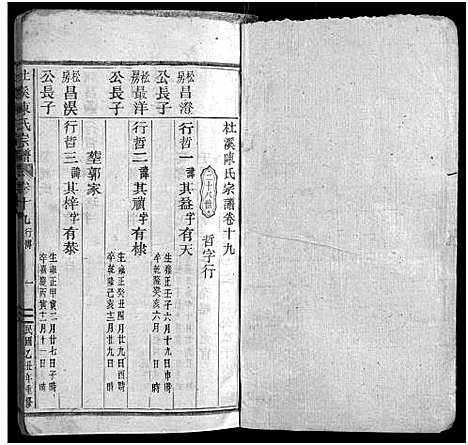 杜溪陳氏宗譜卷十九
二十八世
哲字行
松房昌澄公長子
行哲一諱其益字有天
生雍正壬子六月十九日申時
卒乾隆癸亥六月
松房最洋公長子
行哲二諱其禎字有棣
生雍正癸丑四月廿九日酉時
卒乾隆己亥十二月廿九日
松房昌淏公長子
行哲三諱其梓字有恭
生雍正甲寅二月廿七日子時
卒嘉慶丙寅十二月十一日時
塟郭家
杜溪陳氏宗譜
卷十九行傳
一
民國乙丑年重修